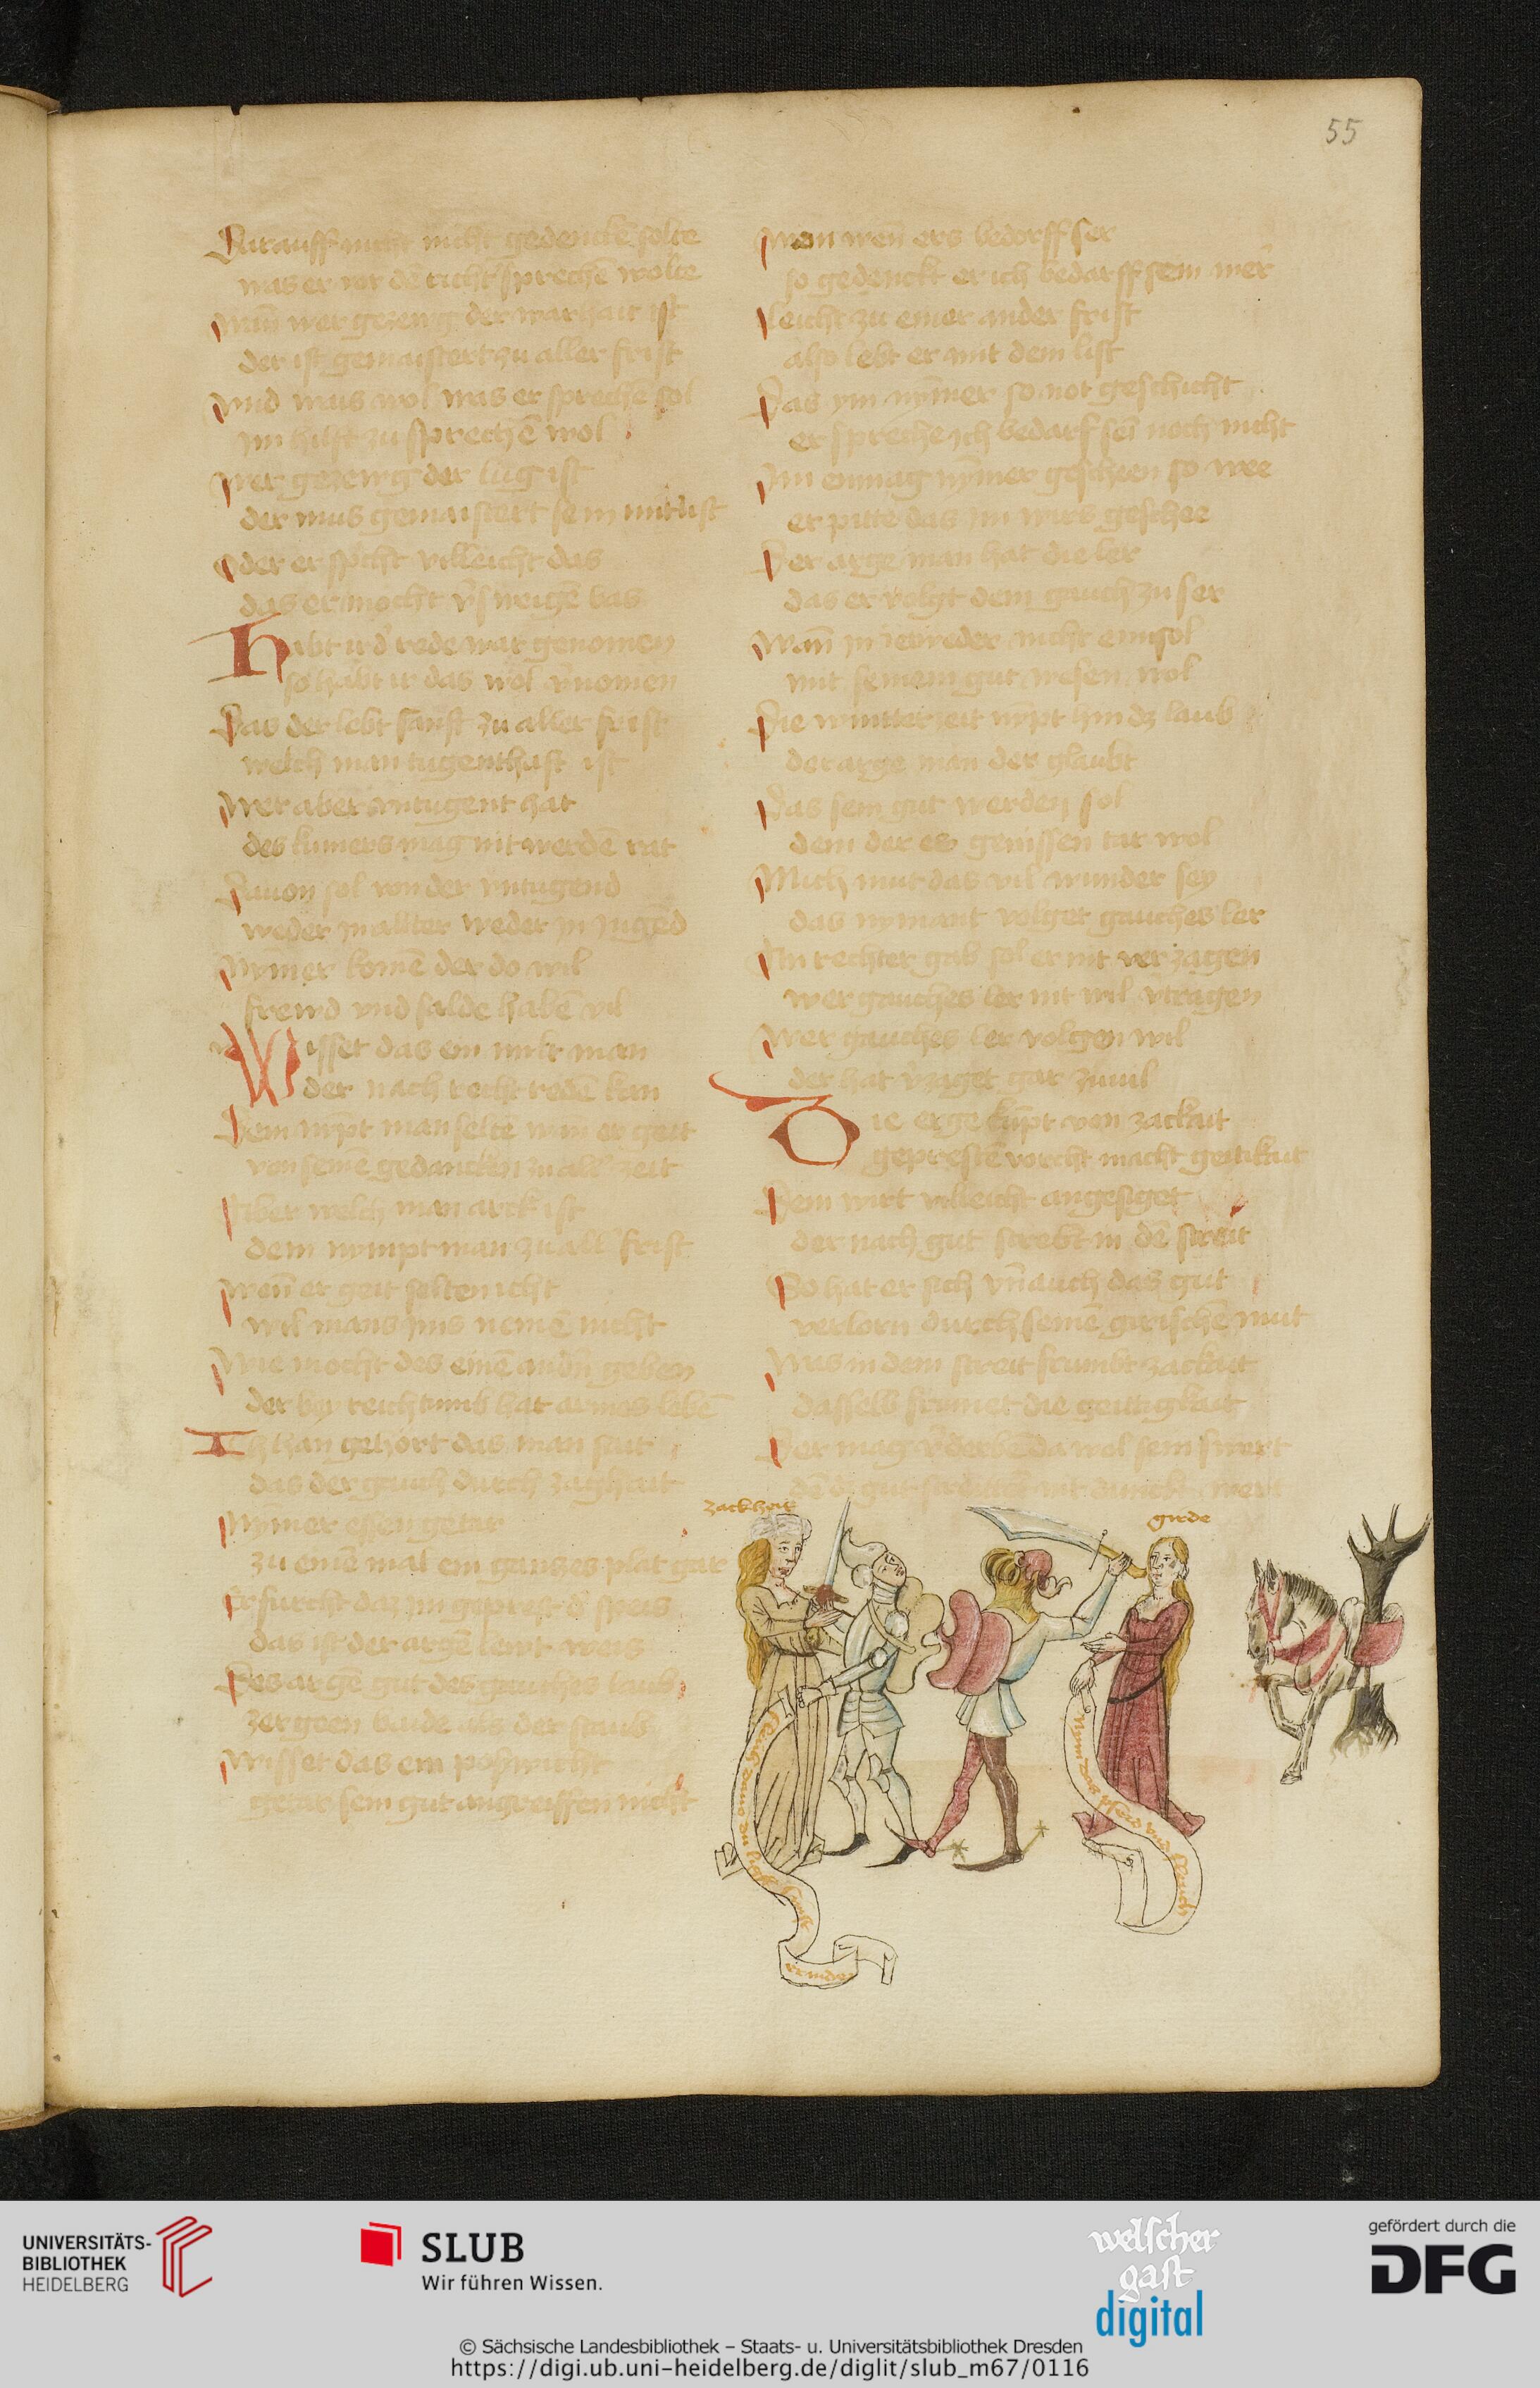 55
Darauff nicht gedenckē solte
was er vor dē richt sprechē wolte
wan̄ wer gezewg der warhait ist
der ist gemaistert zu aller frist
vnd wais wol was er sprechē sol
im hilft zu sprechē wol
wer gezewg der lug ist
der mus gemaistert sein mit list
oder er spricht villeicht das
das er mocht v̄sweigē bas
Habt ir d' rede war genomen
so habt ir das wol v̄nomen
Das der lebt sanft zu aller frist
welch man tugenthaft ist
wer aber vntugent hat
des kumers mag nit werdē rat
Dauon sol von der vntugend
weder in allter weder in jugēd
Nymer komē der do wil
frewd vnd salde habē vil
Wisset das ein milt man
der nach recht redē kan
Dem nympt man selten wan er geit
von seinē gedancken zu all zeit
Aber welch man arck ist
dem nympt man zu all frist
wen̄ er geit selten icht
wil mans ims nemē nicht
Wie mocht des einē andn̄ geben
der bey reichtumb hat armes lebē
Ich han gehort das man seit
das der gauch durch zagheit
Nymer essen getar
zu einē mal ein ganzes plat gar
Er furcht daz im geprest d' speis
das ist der argē lewt weis
Des argē gut des gauches laub
zergeen baide als der staub
wisset das ein poswicht
getar sein gut angreiffen nicht
wen̄ ers bedorff ser
so gedenckt er ich bedarff sein mer
leicht zu einer ander frist
also lebt er mit dem list
Das ym nymer so not geschicht
er spreche ich bedarf sei noch nicht
Im enmag nymer geschehen so wee
er pitte das im wirs geschee
Der arge man hat die ler
das er volgt dem gauch zu ser
wan̄ in ietweder nicht ensol
mit seinem gut wesen wol
Die wintter zeit nympt hin dz laub
der arge man der glaubt
Das sein gut werden sol
dem der es genissen tar wol
Mich mut das vil wunder sey
das nymant volget gauches ler
An rechter gab sol er nit verzagen
wer gauches ler nit wil vtragen
Wer gauches ler volgen wil
der hat v̄zaget gar zuuil
Die erge kūpt von zackait
geprestē vorcht macht geitikait
Dem wirt villeicht angesiget
der nach gut strebt in dē streit
So hat er sich vn̄ auch das gut
verlorn durch seinē girischē mut
Was in dem streit sumbt zackait
dasselb sumet die geitigkait
Der mag v̄derbē da wol sein swert
zackheit
girde
fleuch
nym das pferd vnd fleuch
UNIVERSITÄTS-
BIBLIOTHEK
HEIDELBERG
SLUB
Wir führen Wissen.
welscher
gast
digital
gefördert durch die
DFG
© Sächsische Landesbibliothek – Staats- u. Universitätsbibliothek Dresden
https://digi.ub.uni-heidelberg.de/diglit/slub_m67/0116